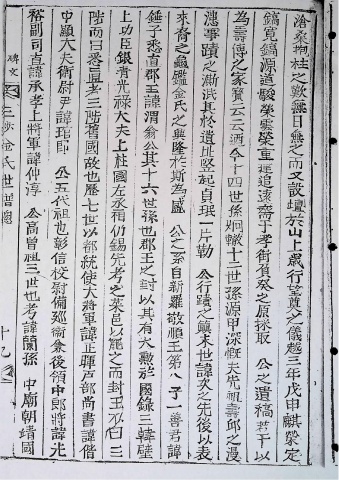 滄桑柱之歎無日無之而又設壇於山上歲行望尊之儀越三年戊申麒榮定
鎬寬鎬源道駿榮馨榮重追遠齋于孝街之原採取 公之遺稿若干以
為壽傳之家寶云云迺今十四世孫炯轍十二世孫源甲深慨夫先祖壽邱之漫
漶事蹟之漸泯其於遺址竪起貞珉一片勒 公行蹟之顚末世諱次之先後以表
來脊之龜鑑金氏之興隆於斯為盛 公之系自新羅敬順王第八子一善君諱
錘子悉直郡王諱渭翁公其十六世孫也郡王之封以其有大勳於國錄三韓壁
上功臣銀靑光祿大夫上柱國左丞相仍錫先考之菜邑以寵之而封王不曰三
陟而曰悉直者三陟舊國故也歷七世以都統使大將軍諱正卿戶部尚書諱偕
中顯大夫衛尉尹諱卽 公五代祖也彰信校尉備巡衛兼後領中郎將諱光
裕副司直諱承孝上將軍諱仲淳 公高曾祖三世也考諱蘭孫 中廟朝靖國
碑文
三陟金氏世譜總
十九